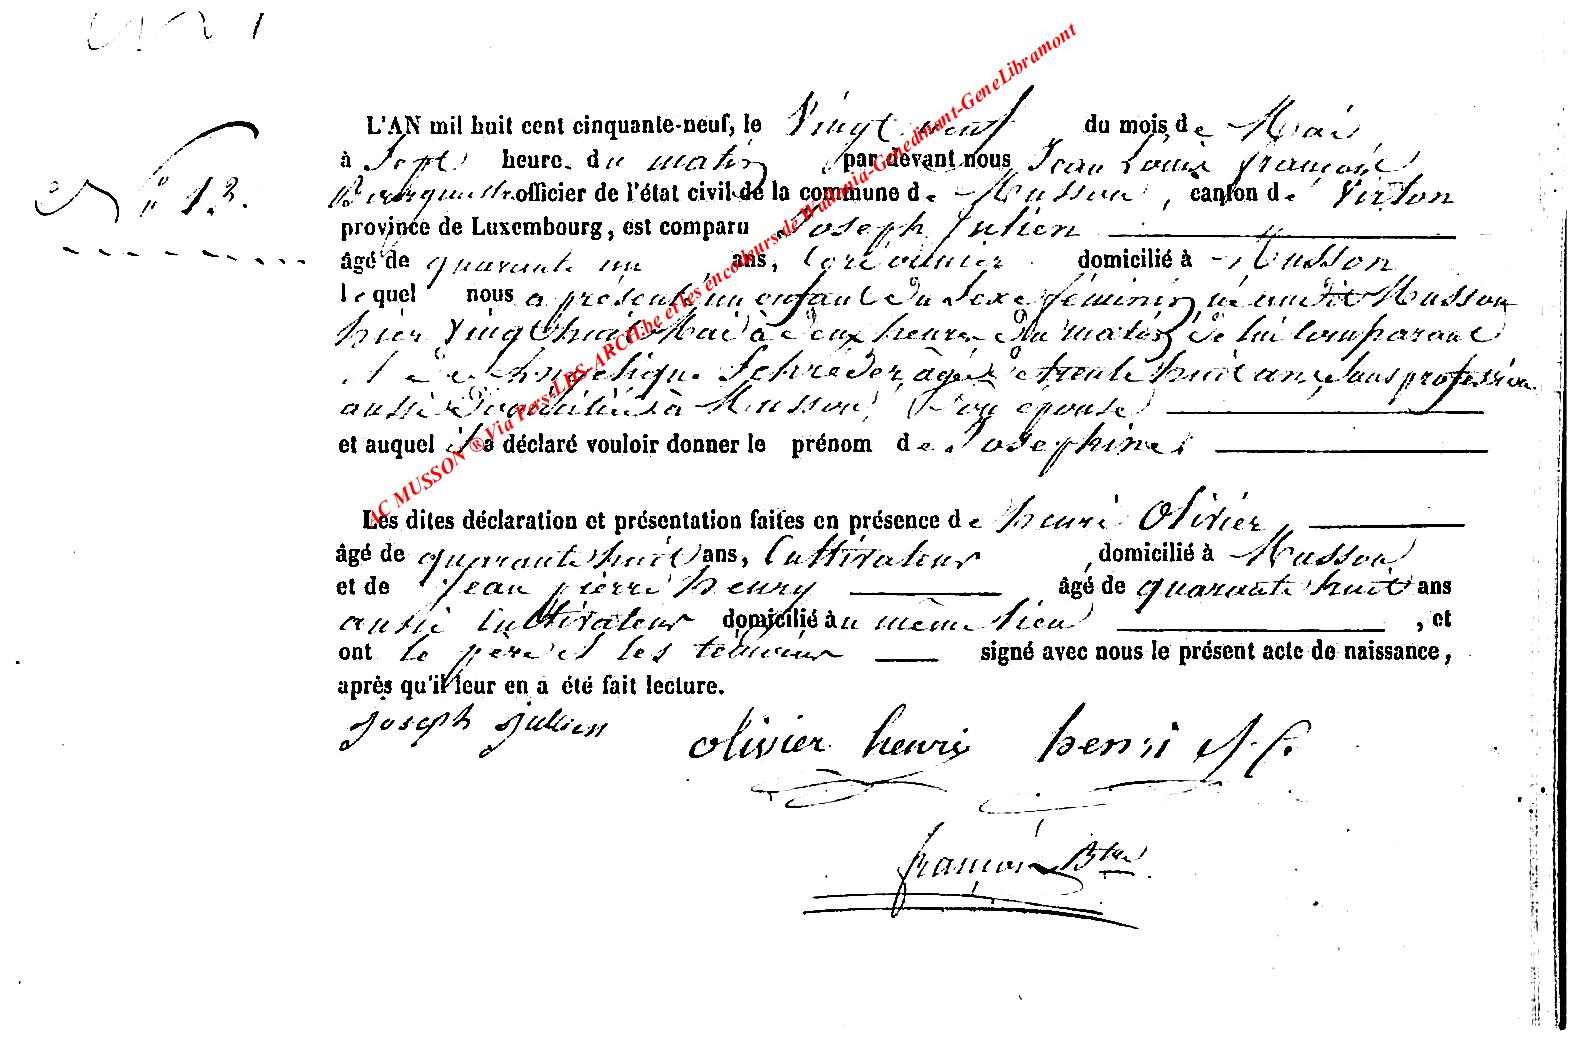 N° 13.
L'AN mil huit cent cinquante-neuf, le Vingt neuf du mois de Mai
à Sept heure. du matin par devant nous Jean Louis françois
Bourguestre officier de l'état civil de la commune de Musson, canton de Virton
province de Luxembourg, est comparu Joseph Julien
âgé de quarante un ans, Cordonnier domicilié à Musson
lequel nous a présenté un enfant du Sexe féminin, né audit Musson
hier Vingt huit Mai à deux heures du matin, de lui Comparant
et de Angélique Schréder, âgée de trente huit ans, Sans profession
aussi domiciliée à Musson, Son épouse
et auquel il a déclaré vouloir donner le prénom de Joséphine
Les dites déclaration et présentation faites en présence de henri Olivier,
âgé de quarante huit ans, Cultivateur, domicilié à Musson
et de Jean pierre henry âgé de quarante huit ans
aussi Cultivateur domicilié au même lieu, et
ont le père et les témoins signé avec nous le présent acte de naissance,
après qu'il leur en a été fait lecture.
joseph jullien
olivier henri henri J. P.
françois Btre
AC MUSSON ® Via Pers-LDS-ARCH.be et les encodeurs de Wallonia-Genedinant-GeneLibramont